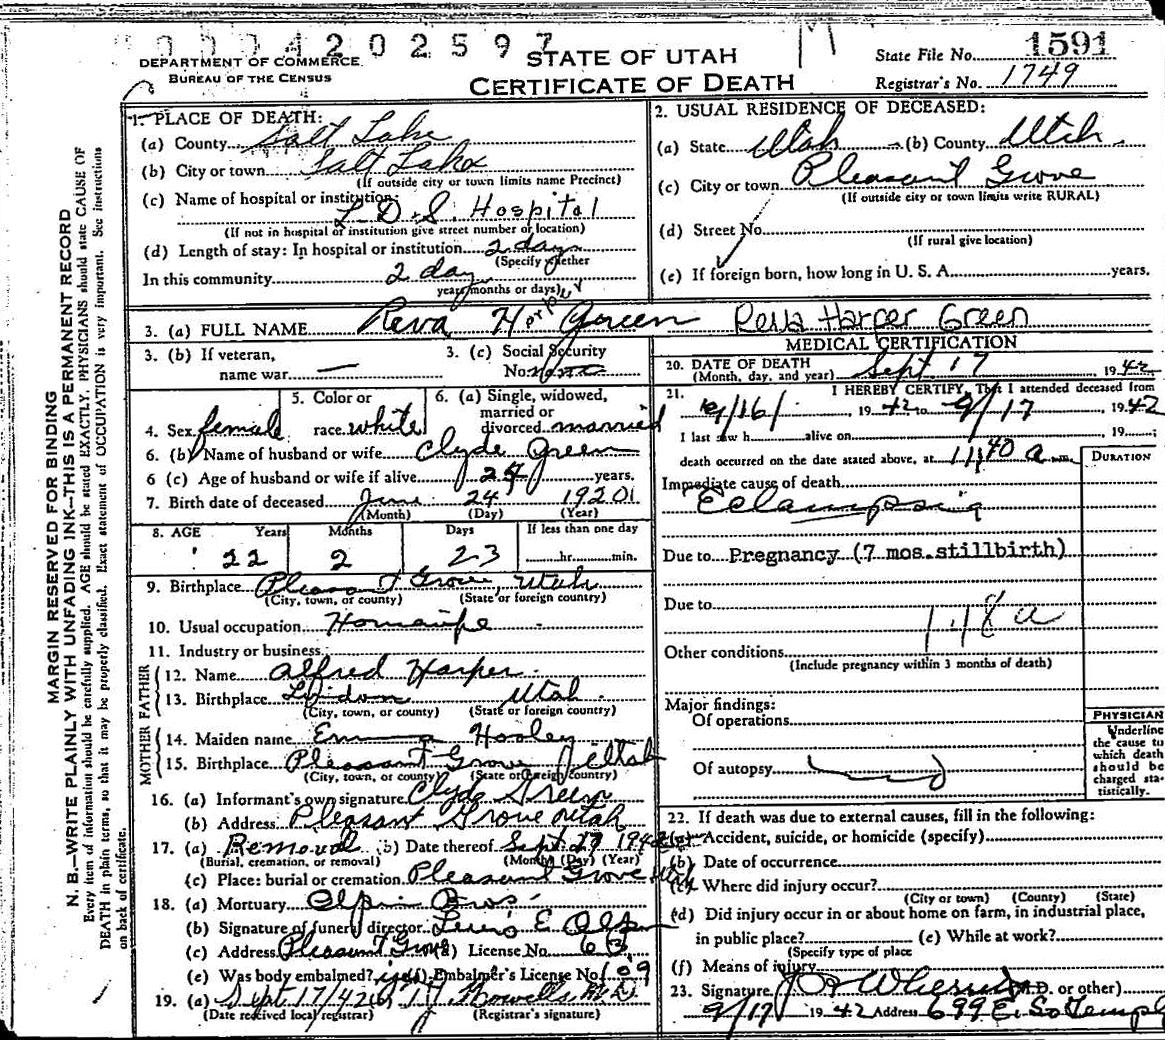 0004202597
DEPARTMENT OF COMMERCE
BUREAU OF THE CENSUS
STATE OF UTAH
CERTIFICATE OF DEATH
State File No. 1591
Registrar's No. 1749
MARGIN RESERVED FOR BINDING
N. B.—WRITE PLAINLY WITH UNFADING INK—THIS IS A PERMANENT RECORD
Every item of information should be carefully supplied. AGE should be stated EXACTLY. PHYSICIANS should state CAUSE OF
DEATH in plain terms, so that it may be properly classified. Exact statement of OCCUPATION is very important. See instructions
on back of certificate.
1. PLACE OF DEATH:
(a) County Salt Lake
(b) City or town Salt Lake
(If outside city or town limits name Precinct)
(c) Name of hospital or institution:
L. D. S. Hospital
(If not in hospital or institution give street number or location)
(d) Length of stay: In hospital or institution 2 days
(Specify whether
In this community 2 day
years, months or days)
2. USUAL RESIDENCE OF DECEASED:
(a) State Utah (b) County Utah
(c) City or town Pleasant Grove
(If outside city or town limits write RURAL)
(d) Street No.
(If rural give location)
(e) If foreign born, how long in U. S. A. years.
3. (a) FULL NAME Reva Harper Green Reva Harper Green
3. (b) If veteran,
name war —
3. (c) Social Security
No. none
4. Sex female
5. Color or
race white
6. (a) Single, widowed,
married or
divorced married
6. (b) Name of husband or wife Clyde Green
6 (c) Age of husband or wife if alive years.
7. Birth date of deceased June 24, 1920
(Month) (Day) (Year)
8. AGE Years Months Days If less than one day
22 2 23 hr. min.
9. Birthplace Pleasant Grove, Utah
(City, town, or county) (State or foreign country)
10. Usual occupation Housewife
11. Industry or business
FATHER
12. Name Alfred Harper
13. Birthplace Lindon Utah
(City, town, or county) (State or foreign country)
MOTHER
14. Maiden name Emma Hooley
15. Birthplace Pleasant Grove Utah
(City, town, or county) (State or foreign country)
16. (a) Informant's own signature Clyde Green
(b) Address Pleasant Grove Utah
17. (a) Removal (b) Date thereof Sept 1942
(Burial, cremation, or removal) (Month) (Day) (Year)
(c) Place: burial or cremation Pleasant Grove Utah
18. (a) Mortuary Olpin Bros
(b) Signature of funeral director Lewis E. Olpin
(c) Address Pleasant Grove (d) License No. 63
(e) Was body embalmed? yes (f) Embalmer's License No. 109
19. (a) Sept 17/42 (b) T. J. Howells M.D.
(Date received local registrar) (Registrar's signature)
MEDICAL CERTIFICATION
20. DATE OF DEATH Sept 17 1942
(Month, day, and year)
21. I HEREBY CERTIFY, That I attended deceased from
9/16/, 1942 to 9/17 1942
I last saw h alive on , 19 ;
death occurred on the date stated above, at 11:40 a m.
DURATION
Immediate cause of death
Eclampsia
Due to Pregnancy (7 mos.stillbirth)
Due to
148a
Other conditions
(Include pregnancy within 3 months of death)
Major findings:
Of operations
Of autopsy
PHYSICIAN
Underline
the cause to
which death
should be
charged sta-
tistically.
22. If death was due to external causes, fill in the following:
(a) Accident, suicide, or homicide (specify)
(b) Date of occurrence
(c) Where did injury occur?
(City or town) (County) (State)
(d) Did injury occur in or about home on farm, in industrial place,
in public place? (e) While at work?
(Specify type of place
(f) Means of injury
23. Signature (M.D. or other)
9/17 1942 Address 699 E. So Temple